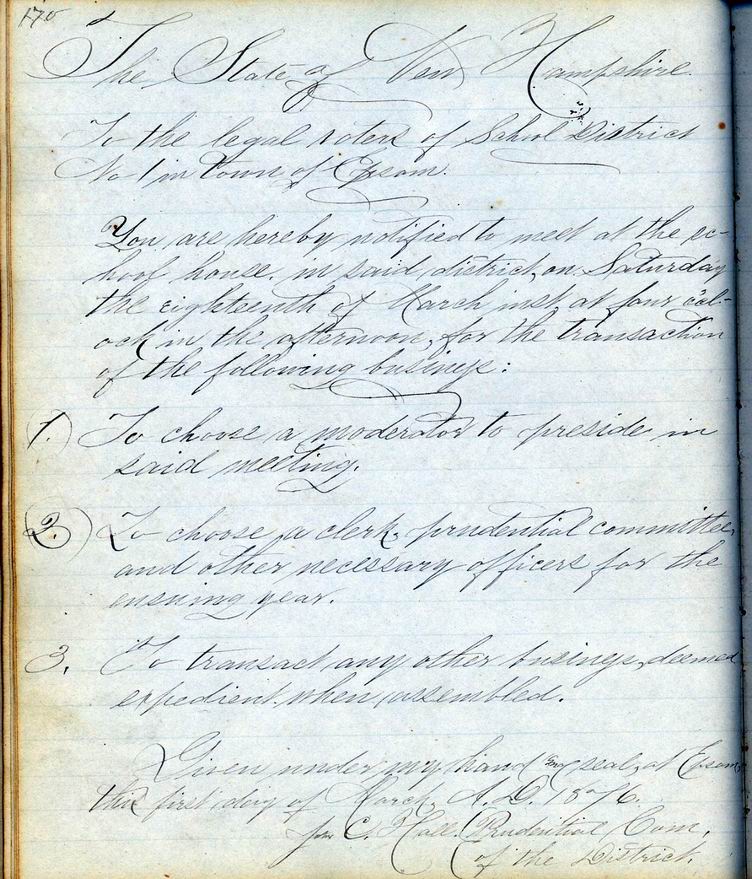 170
The State of New Hampshire.
To the legal voters of School District
No 1 in town of Epsom.
You are hereby notified to meet at the sc-
hool house, in said district, on Saturday
the eighteenth of March inst at four o'cl-
ock in the afternoon, for the transaction
of the following business:
1. To choose a moderator to preside in
said meeting.
2. To choose a clerk, prudential committee,
and other necessary officers for the
ensuing year.
3. To transact any other business, deemed
expedient when assembled.
Given under my hand and seal, at Epsom,
this first day of March, A. D. 1876.
C. Hall. Prudential Com,
of the District.